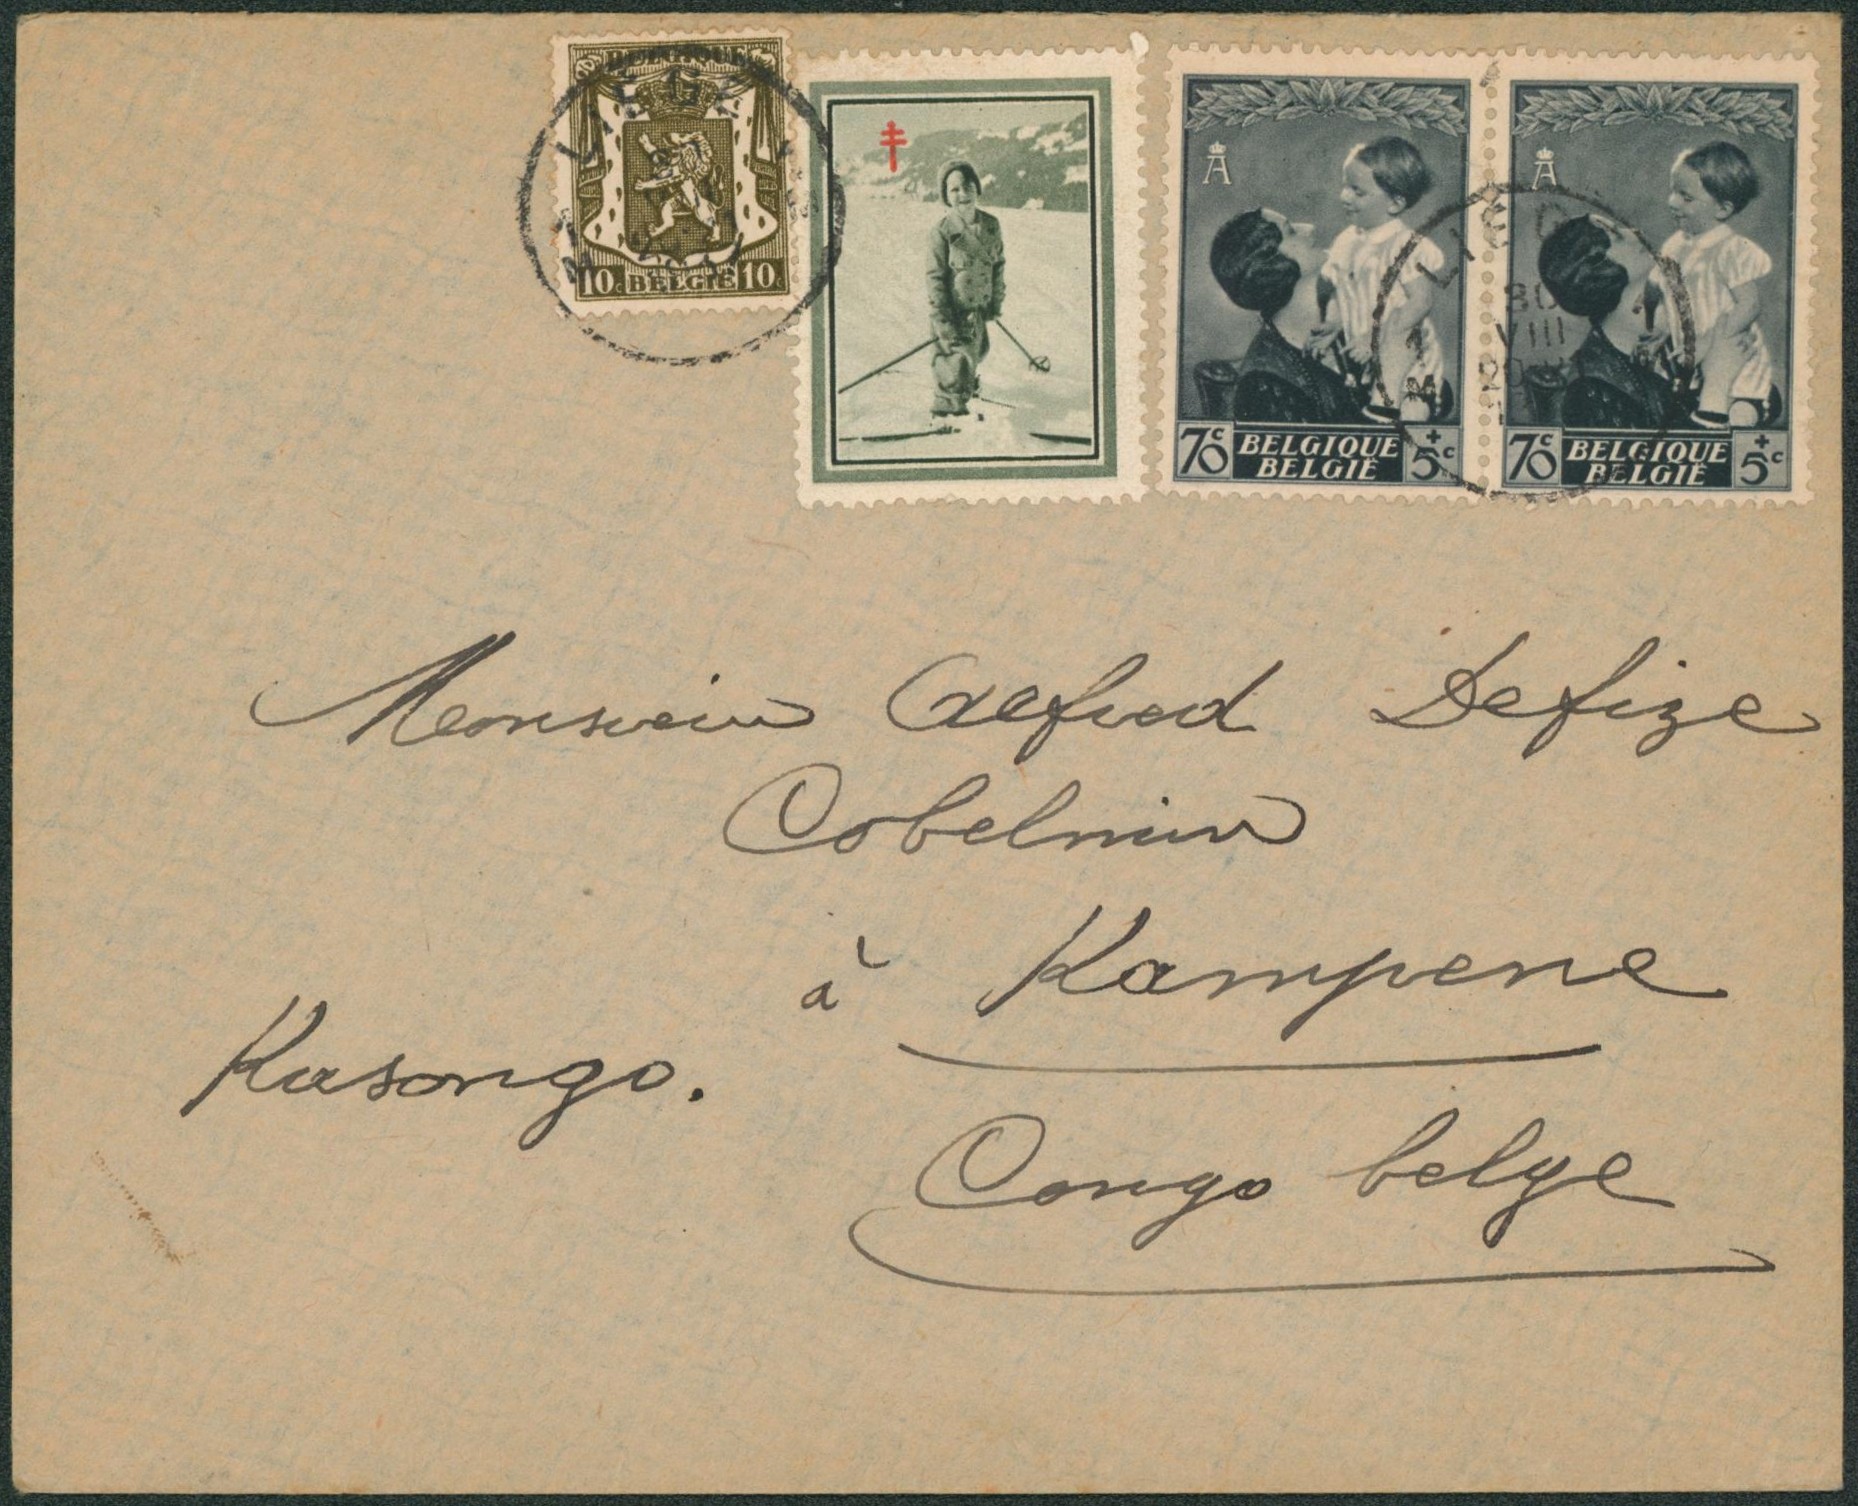 BELGIQUE
10c BELGIË 10c
LIEGE
A
70c BELGIQUE BELGIË +5c
A
70c BELGIQUE BELGIË +5c
LIEGE
30
VIII
Monsieur Alfred Defize
Cobelmin
à Kampene
Kasongo.
Congo belge